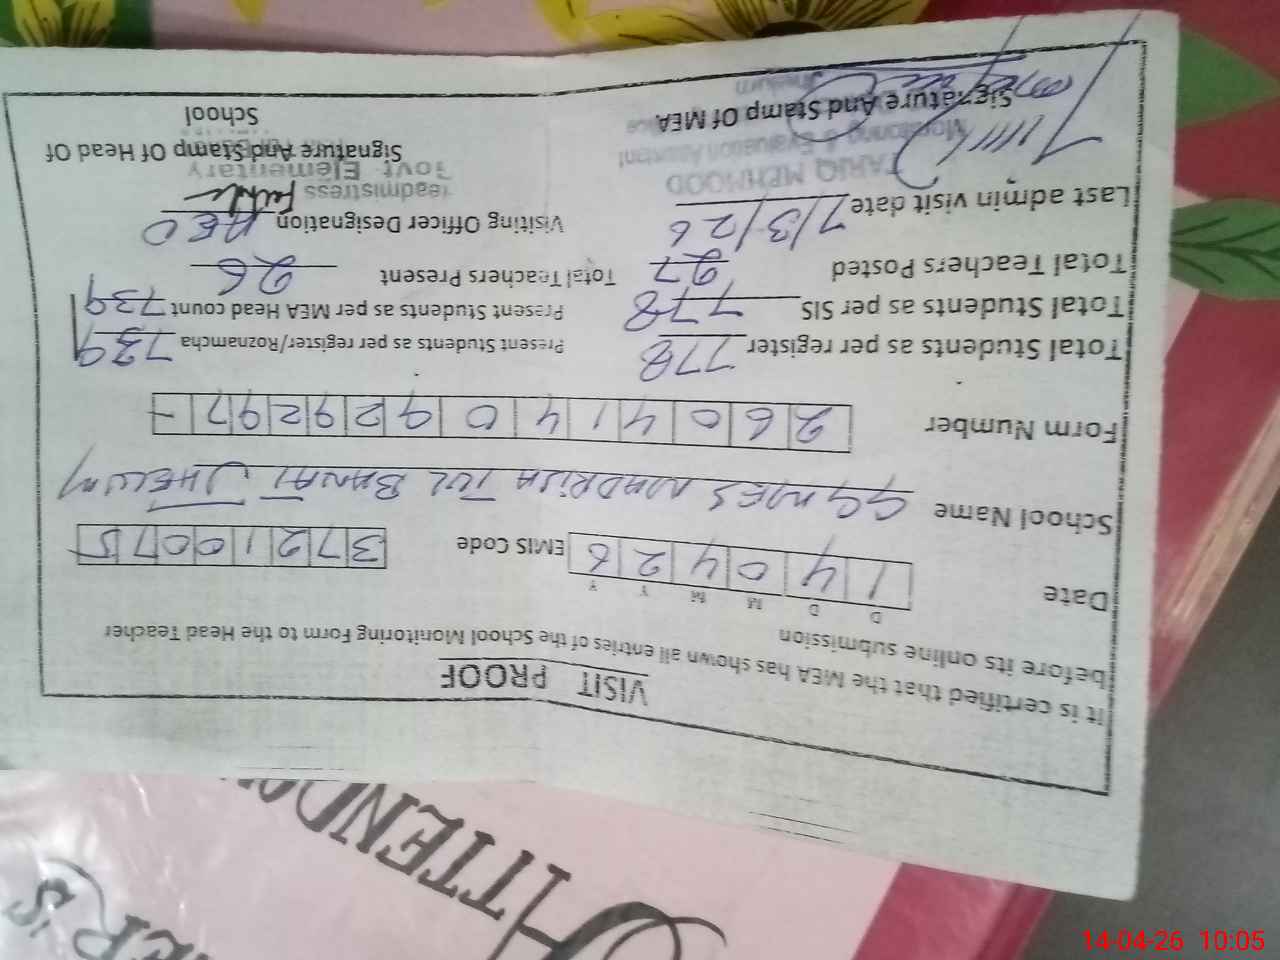 VISIT PROOF
It is certified that the MEA has shown all entries of the School Monitoring Form to the Head Teacher
before its online submission
D D M M Y Y
Date 1 4 0 4 2 6 EMIS Code 3 7 2 1 0 0 7 5
School Name GGMMES TUL BANAT JHELUM
Form Number 2 6 0 4 1 4 0 9 2 9 2 9 7
Total Students as per register 778 Present Students as per register/Roznamcha 739
Total Students as per SIS 778 Present Students as per MEA Head count 739
Total Teachers Posted 27 Total Teachers Present 26
Last admin visit date 7/3/26 Visiting Officer Designation AEO
TARIQ MEHMOOD
Monitoring & Evaluation Assistant
Jhelum
Headmistress
Govt. Elementary
Signature And Stamp Of MEA
Signature And Stamp Of Head Of
School
ATTENDAN
ER'S
14-04-26 10:05